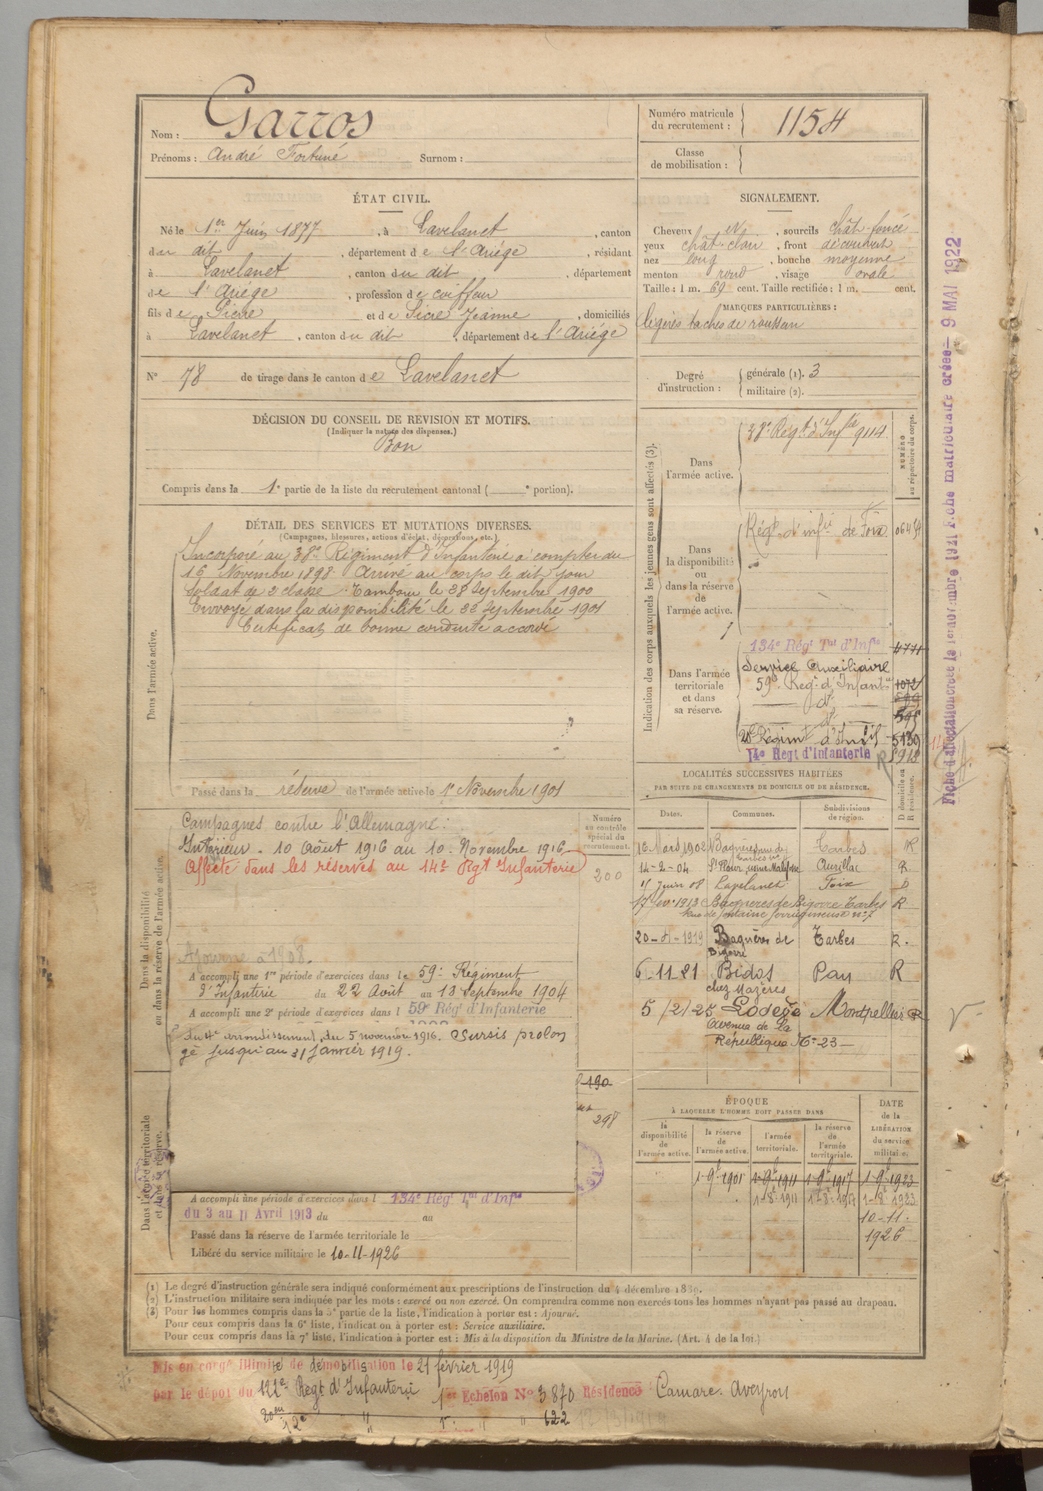 Nom : Garros
Prénoms : André Fortuné Surnom :
Numéro matricule du recrutement : 1154
Classe de mobilisation :
ÉTAT CIVIL.
Né le 1er Juin 1877, à Lavelanet, canton
du dit, département de l'Ariége, résidant
à Lavelanet, canton du dit, département
de l'Ariége, profession de coiffeur
fils de Pierre et de Sicre Jeanne, domiciliés
à Lavelanet, canton du dit, département de l'Ariége
N° 78 de tirage dans le canton de Lavelanet
SIGNALEMENT.
Cheveux Nr, sourcils chât-foncé
yeux chât-clair, front découvert
nez long, bouche moyenne
menton rond, visage ovale
Taille : 1 m. 69 cent. Taille rectifiée : 1 m. cent.
MARQUES PARTICULIÈRES :
légères taches de rousseur
Degré d'instruction : générale (1). 3
militaire (2).
DÉCISION DU CONSEIL DE REVISION ET MOTIFS.
(Indiquer la nature des dispenses.)
Bon
Compris dans la 1e partie de la liste du recrutement cantonal ( e portion).
DÉTAIL DES SERVICES ET MUTATIONS DIVERSES.
(Campagnes, blessures, actions d'éclat, décorations, etc.)
Dans l'armée active.
Incorporé au 38e Régiment d'Infanterie à compter du
16 Novembre 1898 Arrivé au corps le dit jour
Soldat de 2e classe Tambour le 28 Septembre 1900
Envoyé dans la disponibilité le Septembre 1901
Certificat de bonne conduite accordé
Passé dans la réserve de l'armée active le 1er Novembre 1901
Dans la disponibilité ou dans la réserve de l'armée active.
Campagnes contre l'Allemagne :
Intérieur - 10 Août 1916 au 10 Novembre 1916
Affecté dans les réserves au 14e Rgt Infanterie
Numéro au contrôle spécial du recrutement.
200
Ajourné à 1908.
A accompli une 1re période d'exercices dans le 59e Régiment
d'Infanterie du 22 Août au 18 Septembre 1904
A accompli une 2e période d'exercices dans l 59e Rég d'Infanterie
du 4e arrondissement, du 5 novembre 1916. Sursis prolon
gé jusqu'au 31 Janvier 1919.
190
298
Dans l'armée territoriale et dans sa réserve.
A accompli une période d'exercices dans l 134e Rég Tal d'Infie
du 3 au 11 Avril 1913 du au
Passé dans la réserve de l'armée territoriale le
Libéré du service militaire le 10-11-1926
Indication des corps auxquels les jeunes gens sont affectés (3).
NUMÉRO au répertoire du corps.
Dans l'armée active.
38e Régt d'Infie 9114
Dans la disponibilité ou dans la réserve de l'armée active.
Régt d'infie de Foix
Dans l'armée territoriale et dans sa réserve.
134e Régt Tal d'Infie 4771
Service Auxiliaire
59e Régt d'Infanterie 1072
do
do 595
Régimt d'Inf 5139
14e Regt d'Infanterie
LOCALITÉS SUCCESSIVES HABITÉES
PAR SUITE DE CHANGEMENTS DE DOMICILE OU DE RÉSIDENCE.
Dates. Communes. Subdivisions de région. D domicile ou R résidence.
16 Mars 1902 Bagnères de Tarbes R
14-2-04 St Flour Aurillac R.
15 Juin 08 Lavelanet Foix D
17 fév 1913 Bagneres de Bigorre Tarbes R
Rue de fontaine ferrugineuse n° 7
20-4-1919 Bagnères de Bigorre Tarbes R.
6-11-21 Bidos Pau R
chez Mazères
5/2/25 Lodève Montpellier R
Avenue de la
République N° 23
ÉPOQUE
A LAQUELLE L'HOMME DOIT PASSER DANS
la disponibilité de l'armée active. la réserve de l'armée active. l'armée territoriale. la réserve de l'armée territoriale.
DATE de la LIBÉRATION du service militaire.
1-9e-1901 1-9e-1911 1-9e-1917 1-9e-1923
1-8e-1911 1-8e-1917 1-8e-1923
10-11-
1926
Fiche matriculaire créée - 9 MAI 1922
(1) Le degré d'instruction générale sera indiqué conformément aux prescriptions de l'instruction du 4 décembre 1889.
(2) L'instruction militaire sera indiquée par les mots : exercé ou non exercé. On comprendra comme non exercés tous les hommes n'ayant pas passé au drapeau.
(3) Pour les hommes compris dans la 5e partie de la liste, l'indication à porter est : Ajourné.
Pour ceux compris dans la 6e liste, l'indication à porter est : Service auxiliaire.
Pour ceux compris dans la 7e liste, l'indication à porter est : Mis à la disposition du Ministre de la Marine. (Art. 4 de la loi.)
Mis en congé illimité de démobilisation le 21 février 1919
par le dépôt du 122e Regt d'Infanterie 1er Echelon N° 3870 Résidence Camarès Aveyron
622